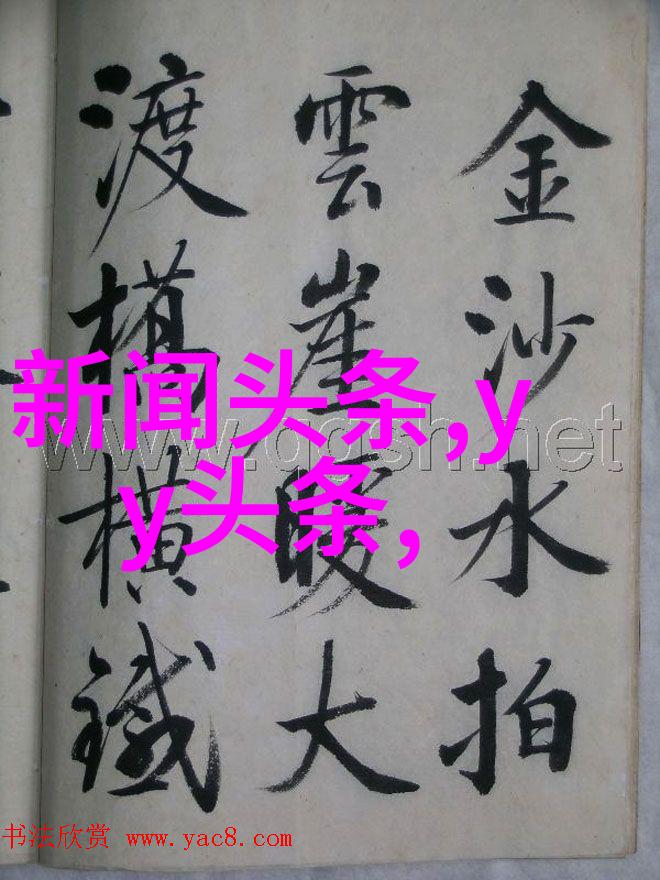 金沙水拍
雲崖暖大
渡橋橫鐵
新闻头条,y
y头条,
www.qgsh.net
书法欣赏 www.yac8.com